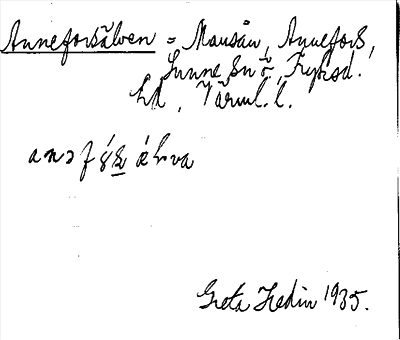 Anneforsälven = Mansån, Annefors,
Sunne sn o. Fryksd.
hd, Värml. l.
Greta Hedin 1935.